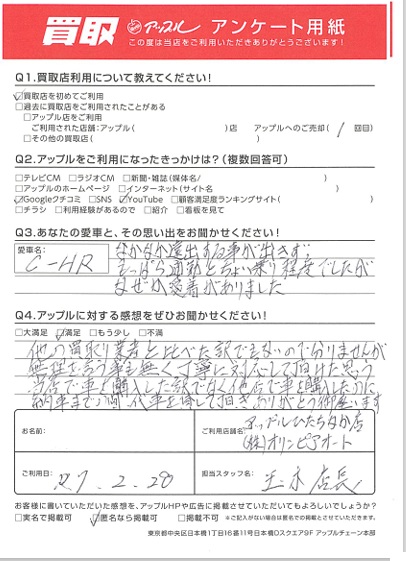 買取 アップル アンケート用紙
この度は当店をご利用いただきありがとうございます!
Q1.買取店利用について教えてください!
☑買取店を初めてご利用
□過去に買取店をご利用されたことがある
□アップル店をご利用
ご利用された店舗:アップル( )店 アップルへのご売却( 1 回目)
□その他の買取店( )
Q2.アップルをご利用になったきっかけは?(複数回答可)
□テレビCM □ラジオCM □新聞・雑誌(媒体名/ )
□アップルのホームページ □インターネット(サイト名 )
☑Googleクチコミ □SNS ☑YouTube □顧客満足度ランキングサイト( )
□チラシ □利用経験があるので □紹介 □看板を見て
Q3.あなたの愛車と、その思い出をお聞かせください!
愛車名: C-HR
なかなか遠出する事が出来ず、
もっぱら通勤とちょい乗り程度でしたが
なぜか愛着がありました
Q4.アップルに対する感想をぜひお聞かせください!
□大満足 ☑満足 □もう少し □不満
他の買取り業者と比べた訳でもないので分りませんが
無理を言う事も無く丁寧に対応して頂けた思う
当店で車を購入した訳でなく他店で車を購入したのに
納車までの間、代車を貸して頂きありがとう御座います
お名前:
ご利用店舗名: アップルひたちなか店
(株)オリンピアオート
ご利用日: R7.2.20
担当スタッフ名: 店長
お客様に書いていただいた感想を、アップルHPや広告に掲載させていただいてもよろしいでしょうか?
□実名で掲載可 ☑匿名なら掲載可 □掲載不可 ※ご記入がない場合は匿名での掲載とさせていただきます。
東京都中央区日本橋1丁目16番11号日本橋Dスクエア9F アップルチェーン本部